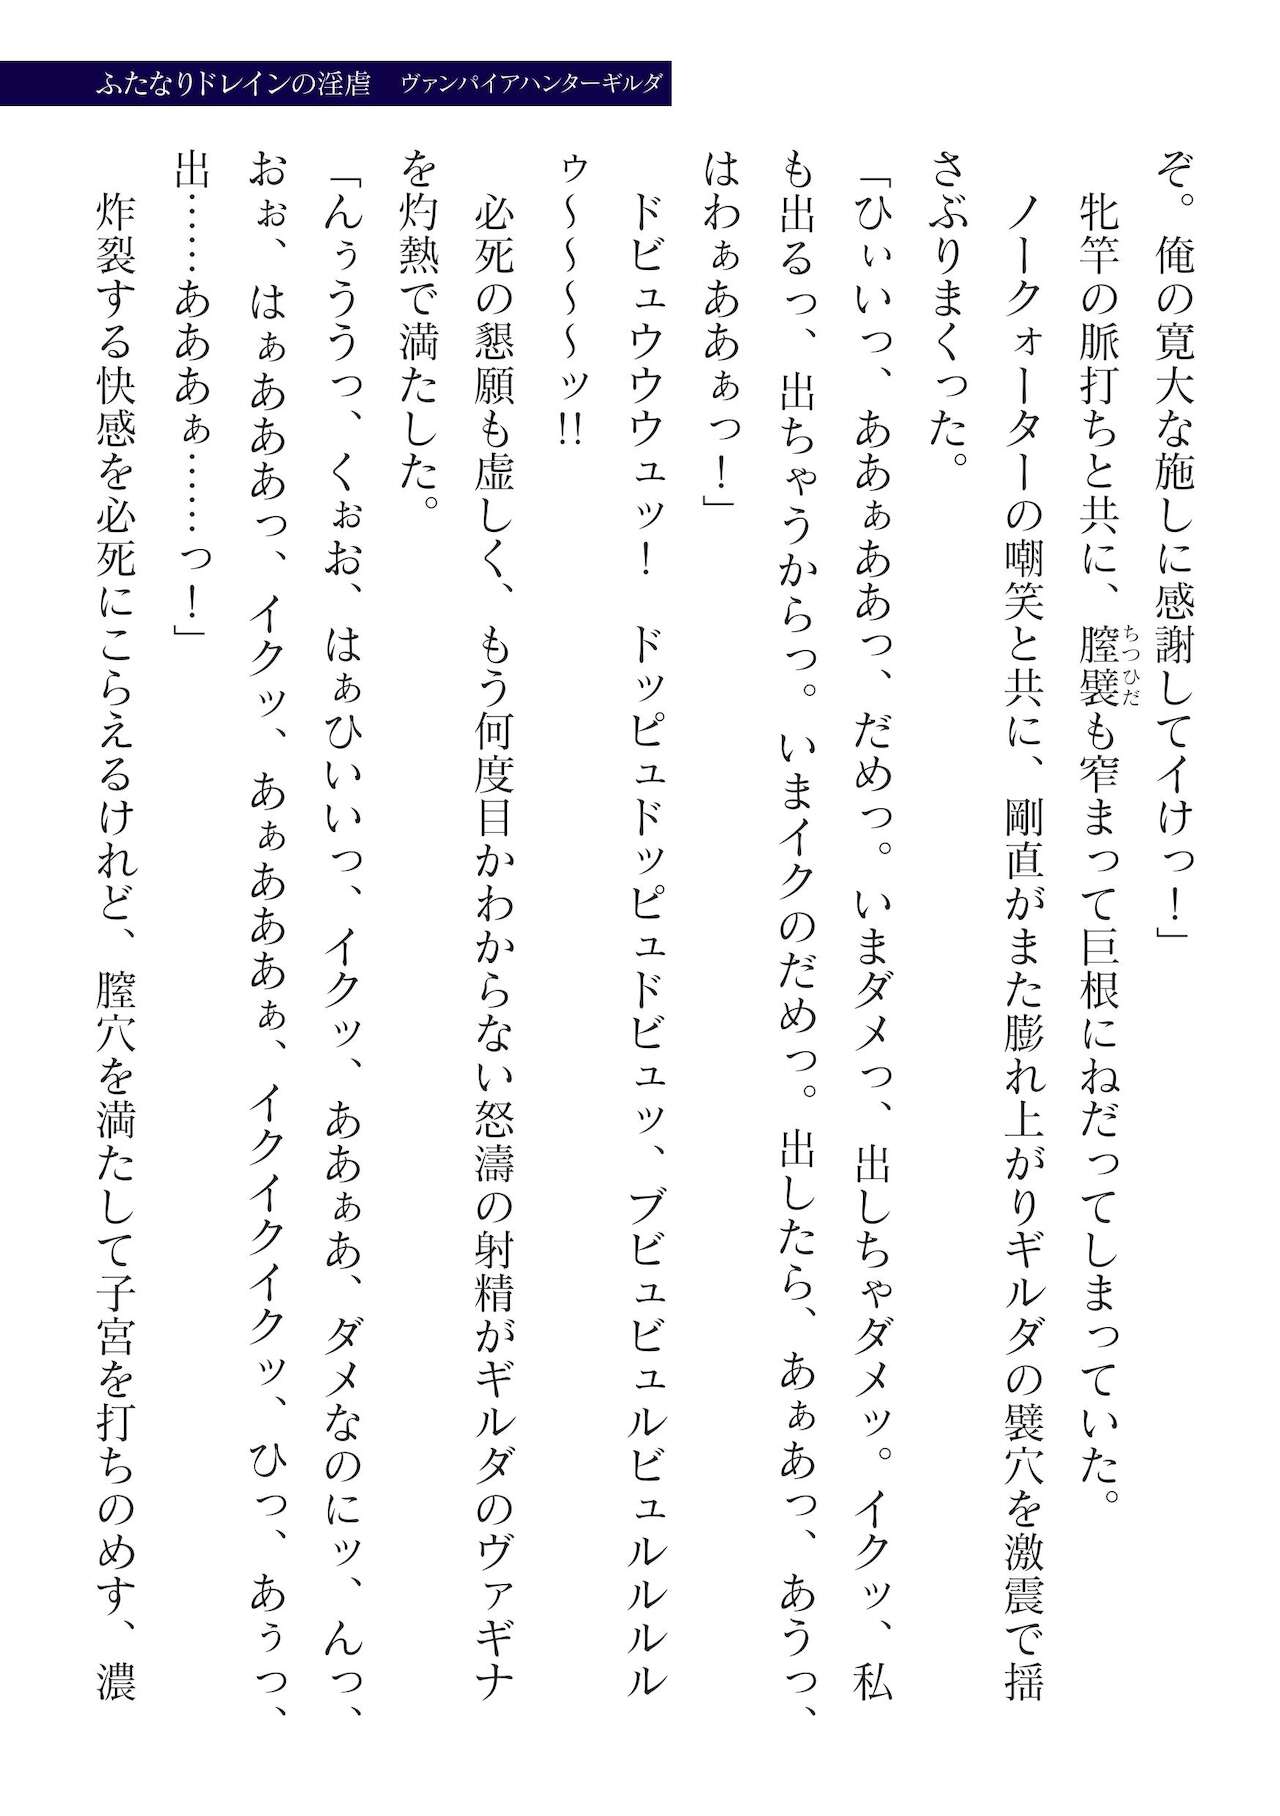 ふたなりドレインの淫虐　ヴァンパイアハンターギルダ
ぞ。俺の寛大な施しに感謝してイけっ！」
　牝竿の脈打ちと共に、膣襞も窄まって巨根にねだってしまっていた。
ちつひだ
　ノークォーターの嘲笑と共に、剛直がまた膨れ上がりギルダの襞穴を激震で揺
さぶりまくった。
「ひぃいっ、ああぁああっ、だめっ。いまダメっ、出しちゃダメッ。イクッ、私
も出るっ、出ちゃうからっ。いまイクのだめっ。出したら、あぁあっ、あうっ、
はわぁああぁっ！」
　ドビュウウウュッ！　ドッピュドッピュドビュッ、ブビュビュルビュルルルルル
ゥ〜〜〜〜ッ!!
　必死の懇願も虚しく、もう何度目かわからない怒濤の射精がギルダのヴァギナ
を灼熱で満たした。
「んぅううっ、くぉお、はぁひいいっ、イクッ、ああぁあ、ダメなのにッ、んっ、
おぉ、はぁあああっ、イクッ、あぁあああぁ、イクイクイクッ、ひっ、あぅっ、
出……あああぁ……っ！」
　炸裂する快感を必死にこらえるけれど、膣穴を満たして子宮を打ちのめす、濃